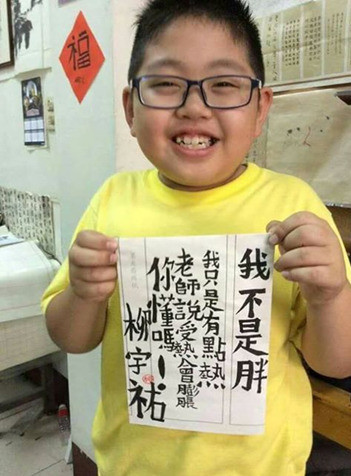 福
我不是胖
我只是有點熱
老師說受熱會膨脹
你懂嗎！
柳字祐